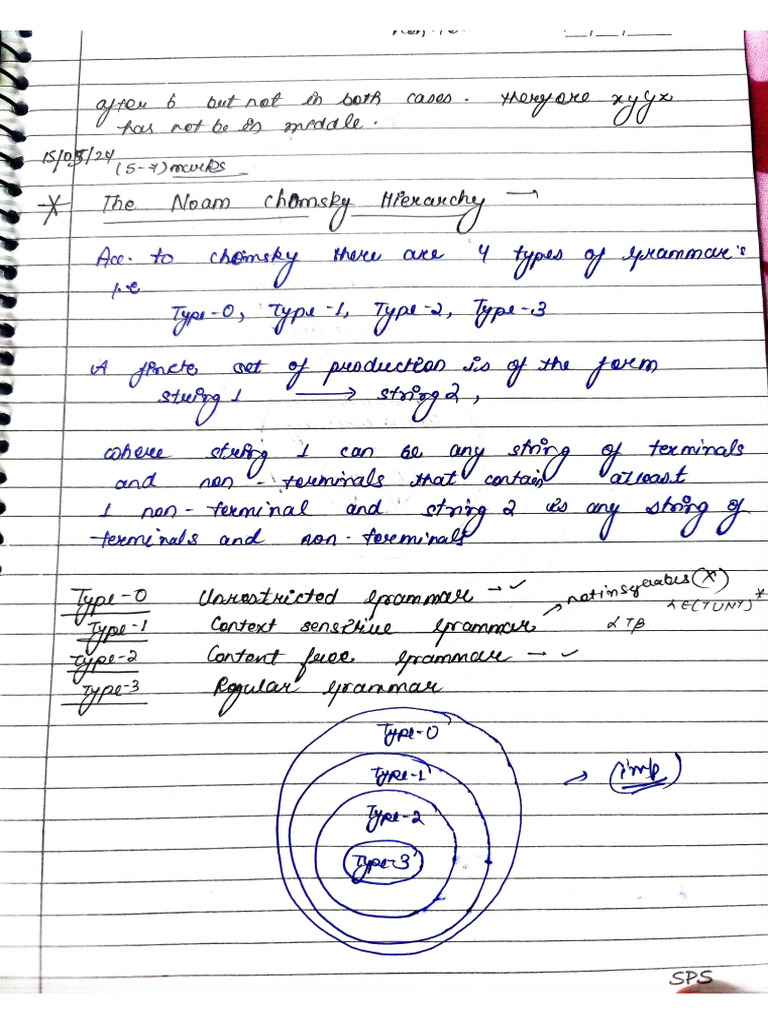 after b but not in both cases. therefore xyyx
has not be in middle.
15/05/24
(5-7) marks
The Noam Chomsky Hierarchy →
Acc. to chomsky there are 4 types of grammar's
i.e
Type-0, Type-1, Type-2, Type-3
A finite set of production is of the form
string 1 → string 2,
where string 1 can be any string of terminals
and non-terminals that contain atleast
1 non-terminal and string 2 is any string of
terminals and non-terminals
Type-0 Unrestricted grammar → ✓
Type-1 Context sensitive grammar → not in syllabus (X)
αTβ
Type-2 Content free grammar → ✓
Type-3 Regular grammar
Type-0
Type-1
Type-2
Type-3
→ (imp)
SPS